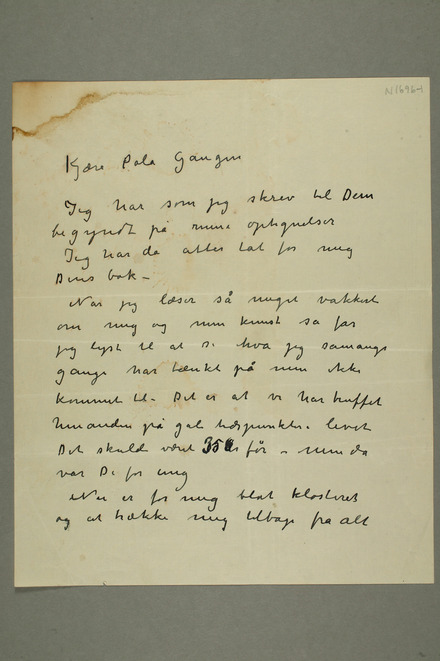 N1696-1
Kjære Pola Gaugin
Jeg har som jeg skrev til Dem
begyndt på mine optegnelser
Jeg har da atter tat for mig
Deres bok –
Når jeg læser så meget vakkert
om mig og min kunst så får
jeg lyst til at si hva jeg så mange
gange har tænkt på men ikke
kommet til – Det er at vi har truffet
hinanden på galt tidspunkt i livet
Det skulde været 35 år før – men da
var De for ung
Nu er for mig blot klosteret
og at trække mig tilbage fra alt